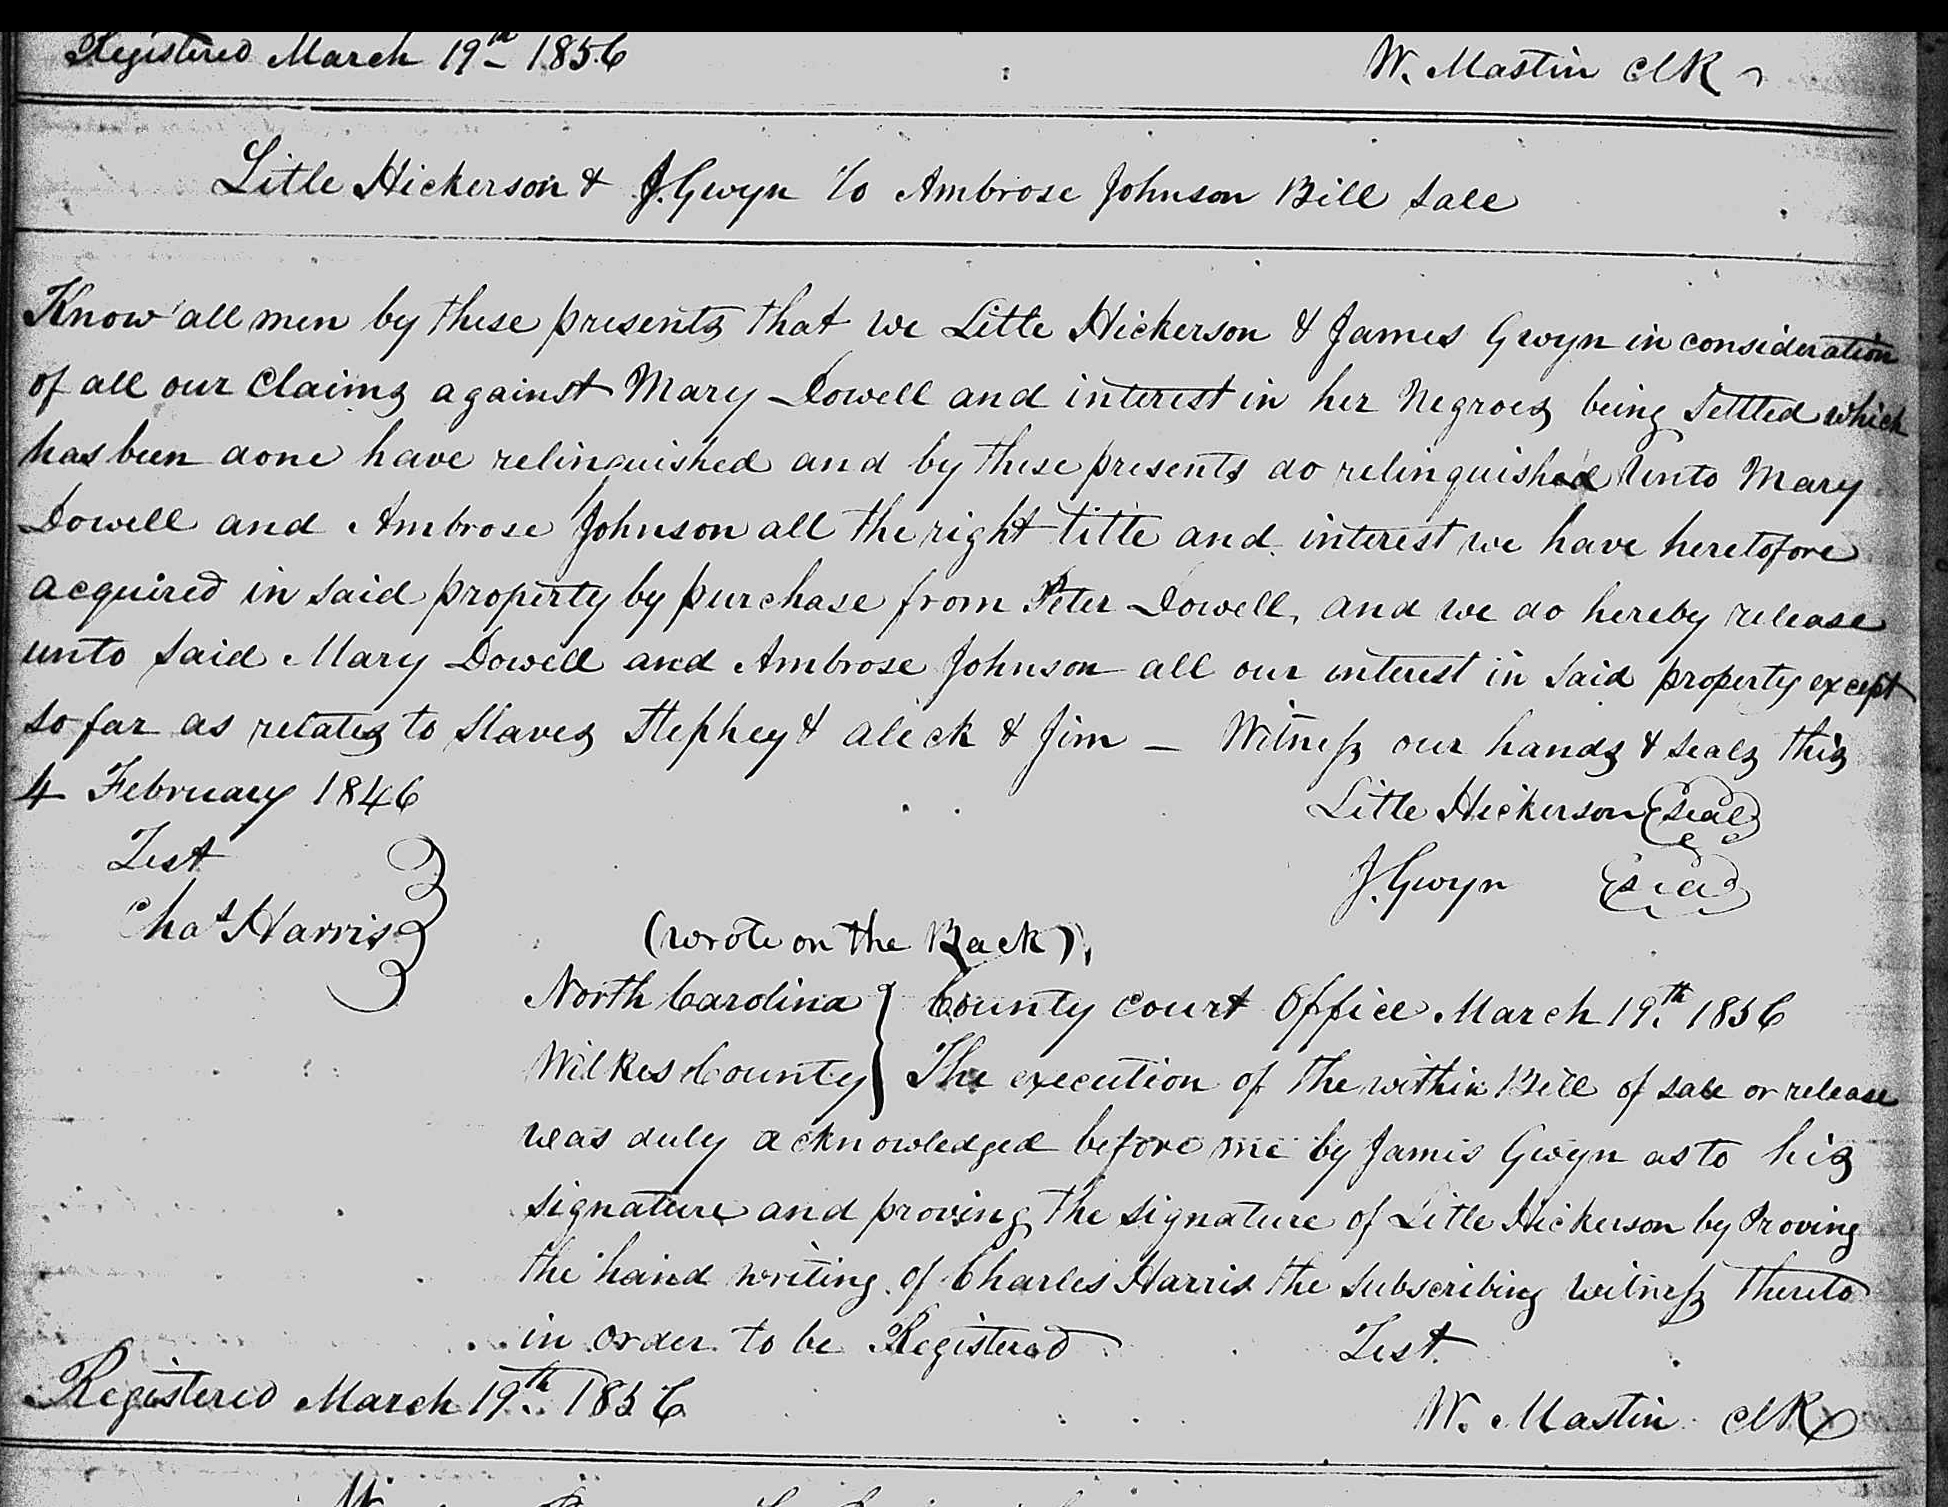 Registered March 19th 1856 W. Mastin Clk
Litle Hickerson & J. Gwyn To Ambrose Johnson Bill Sale
Know all men by these presents that we Litle Hickerson & James Gwyn in consideration
of all our Claims against Mary Dowell and interest in her Negroes being Settled which
has been done have relinquished and by these presents do relinquished Unto Mary
Dowell and Ambrose Johnson all the right title and interest we have heretofore
acquired in said property by purchase from Peter Dowell, and we do hereby release
unto said Mary Dowell and Ambrose Johnson all our interest in said property except
so far as relates to Slaves Stephey & Aleck & Jim — Witness our hands & seals this
4 February 1846 Litle Hickerson (Seal)
Test
J. Gwyn (Seal)
Chas Harris
(wrote on the Back),
North Carolina } County Court Office March 19th 1856
Wilkes County } The execution of the within Bill of sale or release
was duly acknowledged before me by James Gwyn as to his
signature and proving the signature of Litle Hickerson by Proving
the hand writing of Charles Harris the subscribing witness thereto
in order to be Registered Test.
Registered March 19th 1856 W. Mastin Clk